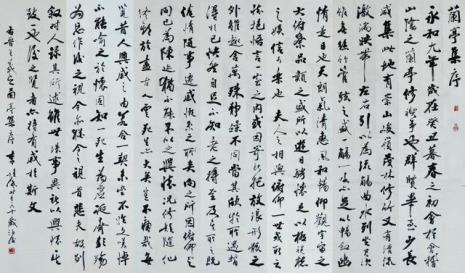 蘭亭集序
永和九年歲在癸丑暮春之初會於會稽
山陰之蘭亭修禊事也群賢畢至少長
咸集此地有崇山峻領茂林修竹又有清流
激湍映帶左右引以為流觴曲水列坐其次
雖無絲竹管弦之盛一觴一詠亦足以暢敘幽
情是日也天朗氣清惠風和暢仰觀宇宙之
大俯察品類之盛所以遊目騁懷足以極視聽
之娛信可樂也夫人之相與俯仰一世或取
諸懷抱悟言一室之內或因寄所托放浪形骸之
外雖趣舍萬殊靜躁不同當其欣於所遇暫
得於己快然自足不知老之將至及其所之既
倦情隨事遷感慨係之矣向之所欣俯仰之
間已為陳跡猶不能不以之興懷況修短隨化
終期於盡古人云死生亦大矣豈不痛哉每
覽昔人興感之由若合一契未嘗不臨文嗟悼
不能喻之於懷固知一死生為虛誕齊彭殤
為妄作後之視今亦猶今之視昔悲夫故列
敘時人錄其所述雖世殊事異所以興懷其
致一也後之覽者亦將有感於斯文
右晉王羲之蘭亭集序